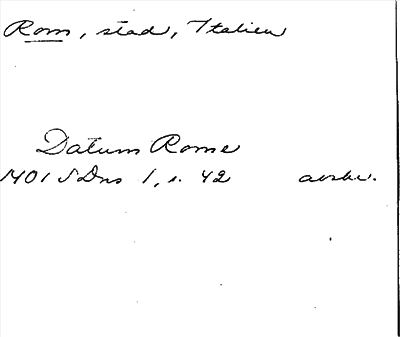 Rom, stad, Italien
Datum Rome
1401 SDns 1, s. 42 avskr.